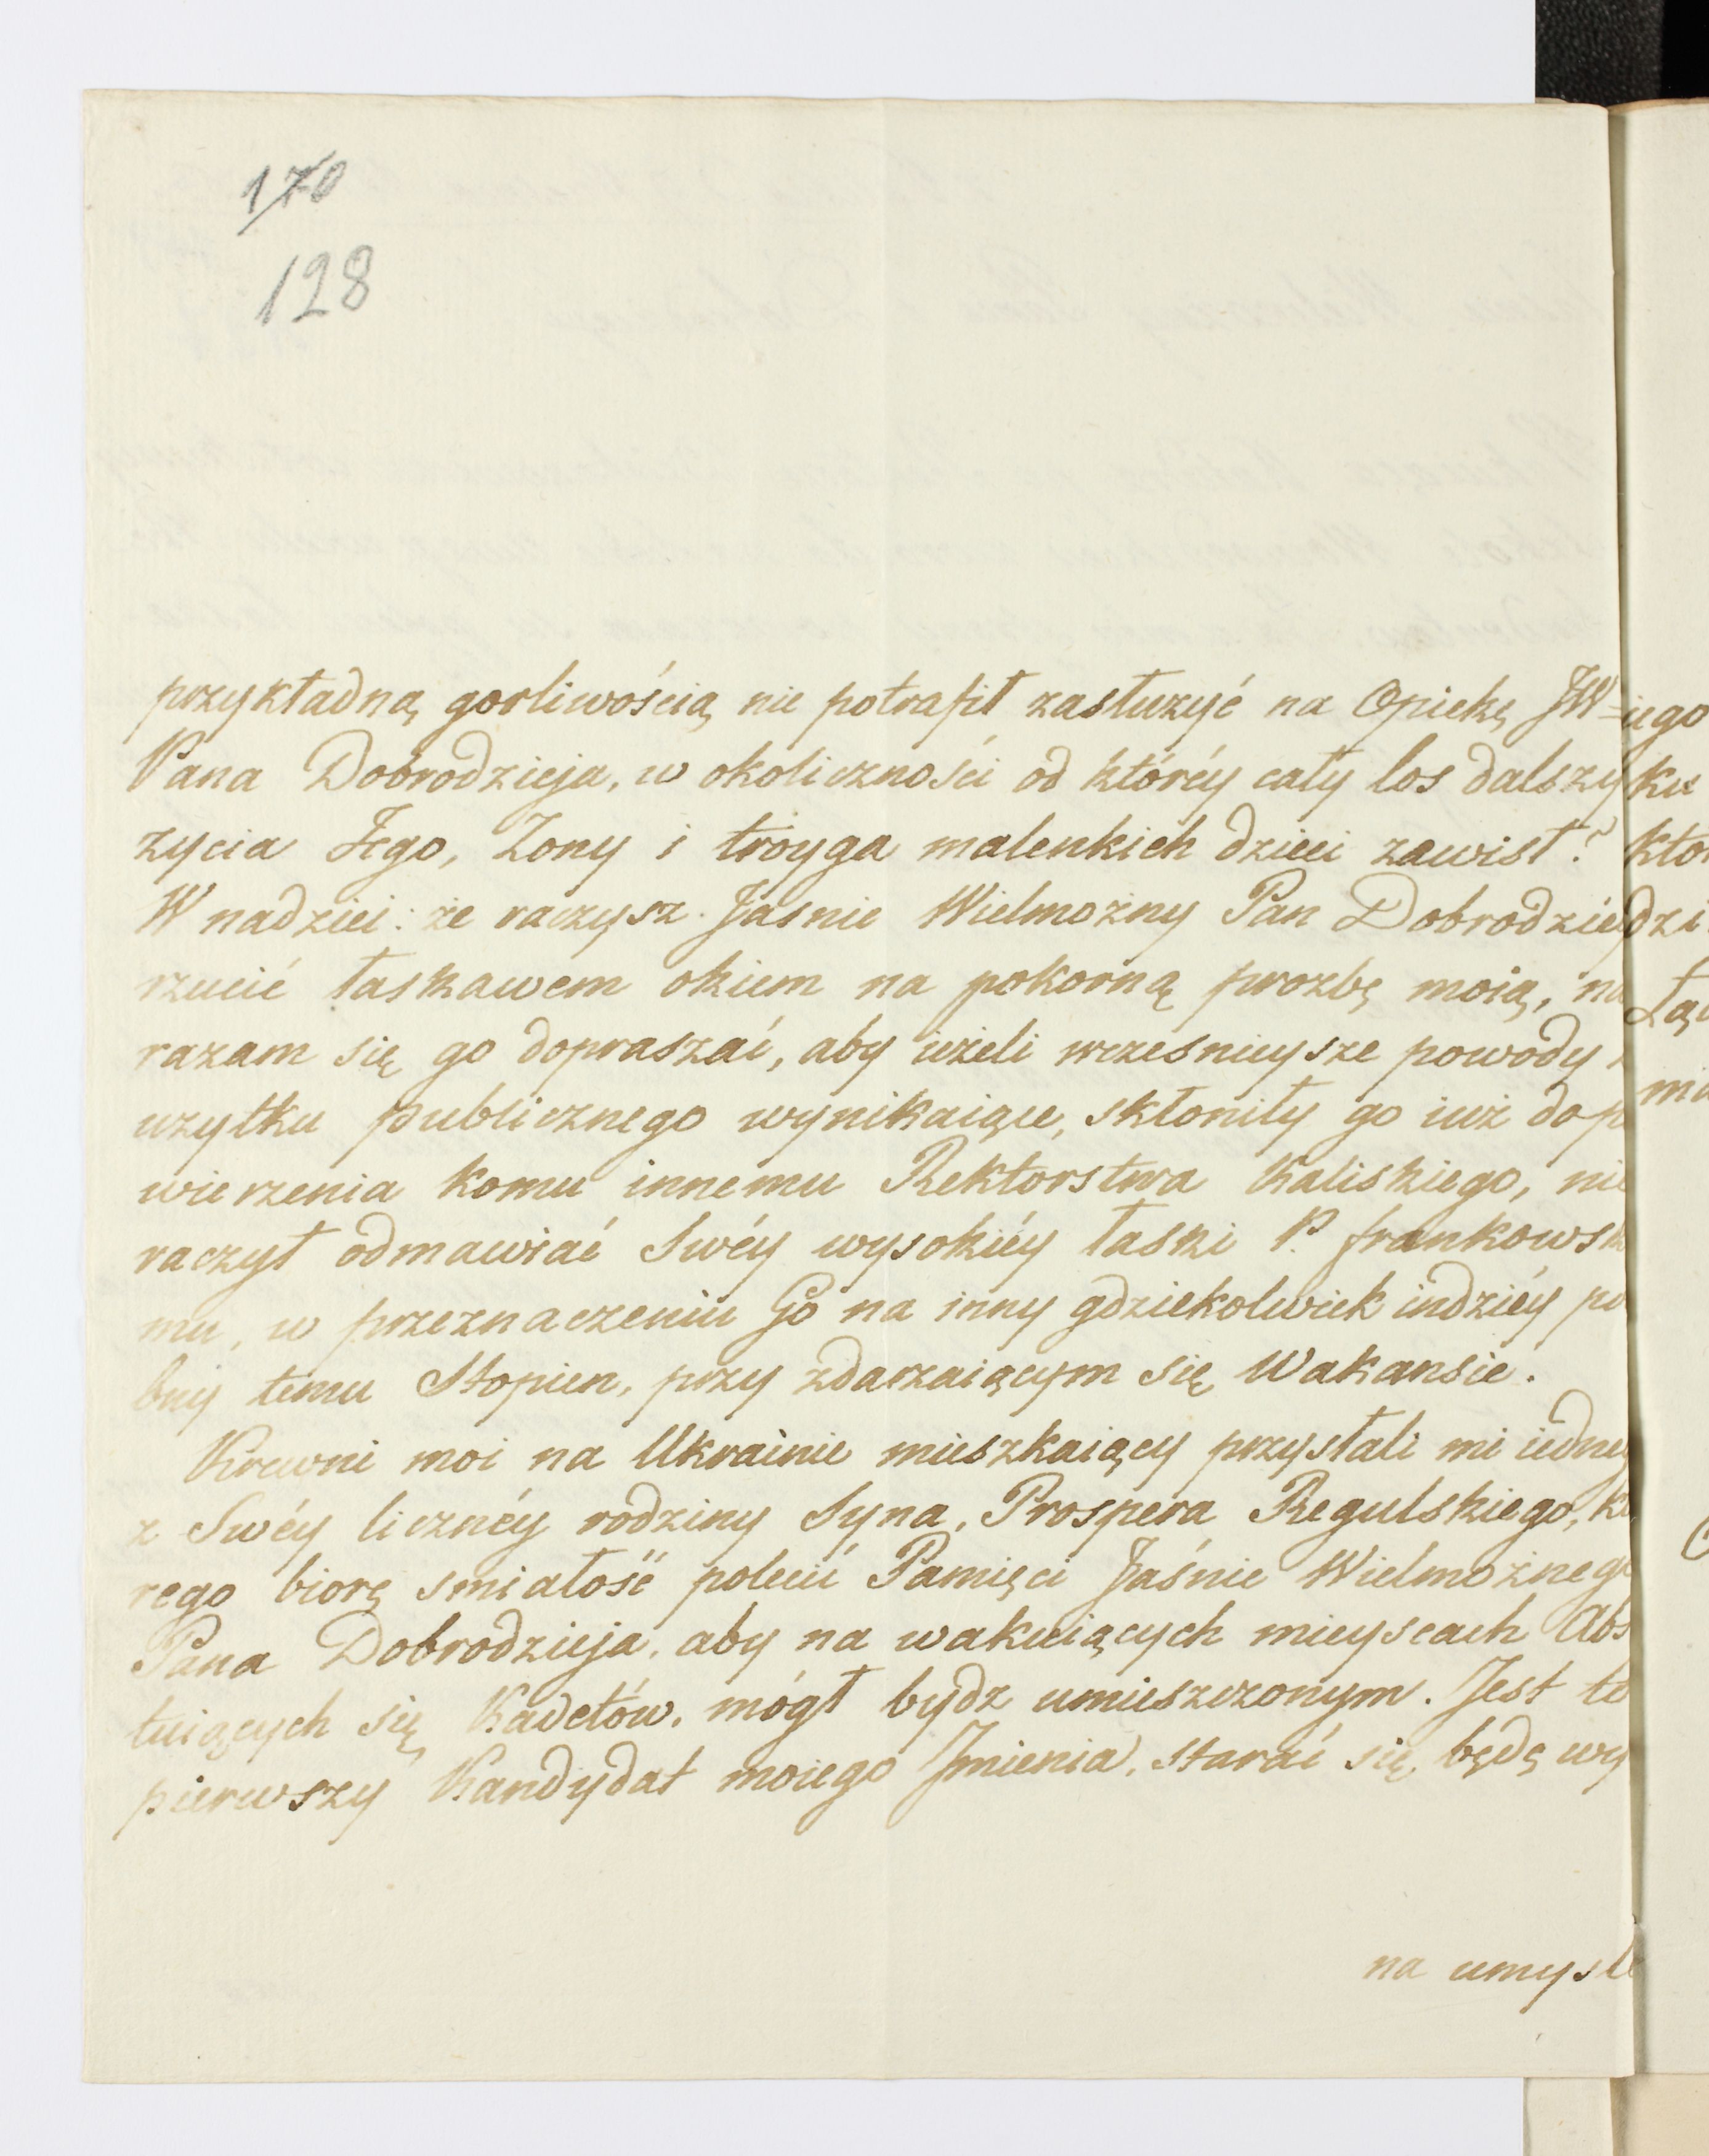 170
128
przykładną gorliwością nie potrafił zasłużyć na Opiekę JW=
Pana Dobrodzieja, w okoliczności od któréy cały los dalszy
życia Jego, Zony i troyga malenkich dzieci zawisł?
W nadziei: że raczysz Jasnie Wielmożny Pan Dobrodzie
rzucić łaskawem okiem na pokorną prozbę moią, na
razam się go dopraszać, aby ieżeli wcześnieysze powody
użytku publicznego wynikaiące, skłoniły go iuż do po
wierzenia komu innemu Rektorstwa Kaliskiego, nie
raczył odmawiać Swéy wysokiéy łaski P. Frankowsk
mu, w przeznaczeniu Go na inny gdziekolwiek indziéy po
bny temu Stopien, przy zdarzaiącym się Wakansie.
Krewni moi na Ukrainie mieszkaiący przysłali mi iedne
z Swéy licznéy rodziny Syna, Prospera Regulskiego, kt
rego biorę smiałość polecić Pamięci Jaśnie Wielmożnego
Pana Dobrodzieja, aby na wakuiących mieyscach Abs
tuiących się Kadetów, mógł bydz umieszczonym. Jest to
pierwszy Kandydat moiego Jmienia, starać się będę wy
na umysle
iego
ku
któr
dzi
Łą
mi